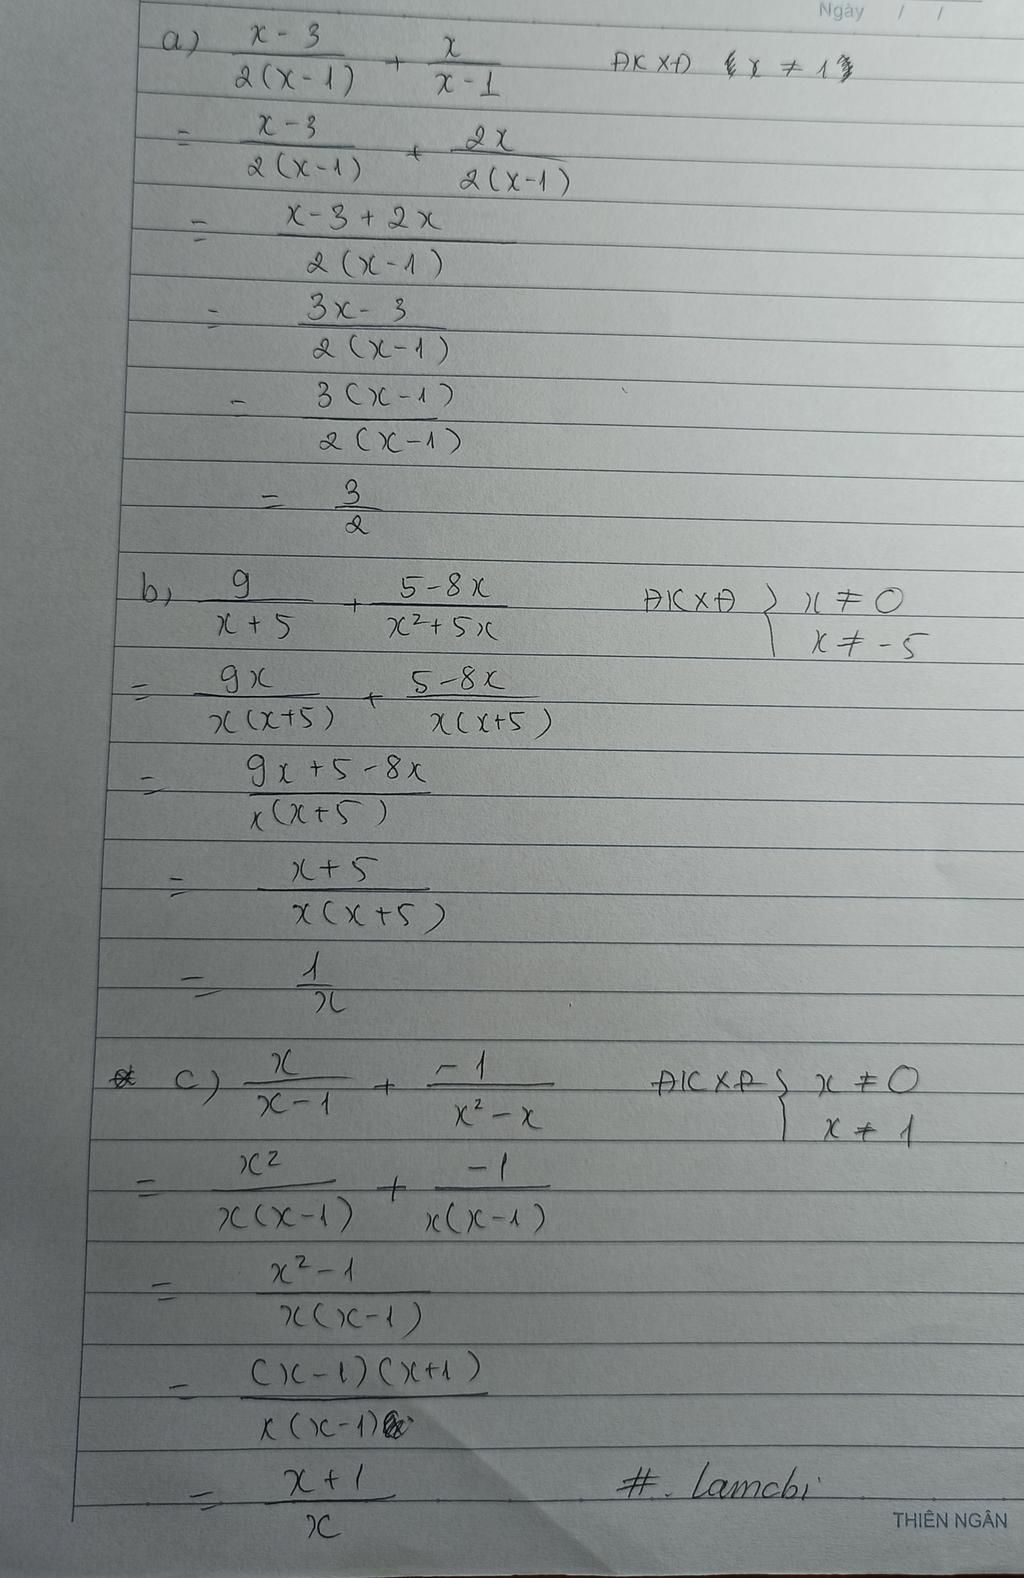 Ngày / /
a) \frac{x-3}{2(x-1)} + \frac{x}{x-1} ĐKXĐ x ≠ 1
= \frac{x-3}{2(x-1)} + \frac{2x}{2(x-1)}
= \frac{x-3+2x}{2(x-1)}
= \frac{3x-3}{2(x-1)}
= \frac{3(x-1)}{2(x-1)}
= \frac{3}{2}
b, \frac{9}{x+5} + \frac{5-8x}{x^2+5x} ĐKXĐ { x ≠ 0
x ≠ -5
= \frac{9x}{x(x+5)} + \frac{5-8x}{x(x+5)}
= \frac{9x+5-8x}{x(x+5)}
= \frac{x+5}{x(x+5)}
= \frac{1}{x}
c) \frac{x}{x-1} + \frac{-1}{x^2-x} ĐKXĐ { x ≠ 0
x ≠ 1
= \frac{x^2}{x(x-1)} + \frac{-1}{x(x-1)}
= \frac{x^2-1}{x(x-1)}
= \frac{(x-1)(x+1)}{x(x-1)}
= \frac{x+1}{x} #. lamchi
THIÊN NGÂN